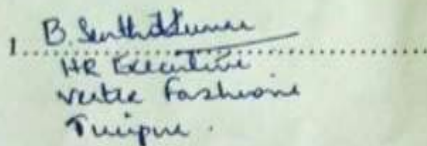 1. B. Senthilkumar
HR Executive
Vertex Fashions
Tiruppur.